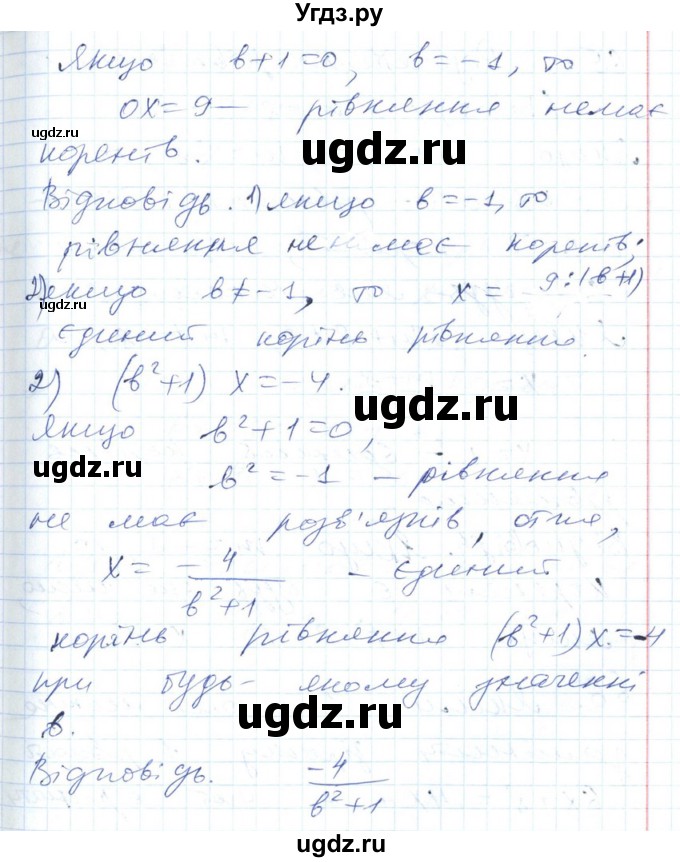 Угдз.ру
Якщо в+1=0, в=-1, то
0x=9 – рівняння немає
коренів.
Відповідь. 1) якщо в=-1, то
рівняння не має коренів;
2) якщо в≠-1, то x = 9:(в+1)
єдиний корінь рівняння.
2) (в²+1) x = -4.
Якщо в²+1=0,
в²=-1 – рівняння
не має розв'язків, отже,
x = -4/(в²+1) – єдиний
корінь рівняння (в²+1)x=-4
при будь-якому значенні
в.
Відповідь. -4/(в²+1)
ugdz.ru
ugdz.ru
ugdz.ru
ugdz.ru
ugdz.ru
ugdz.ru
ugdz.ru
ugdz.ru
ugdz.ru